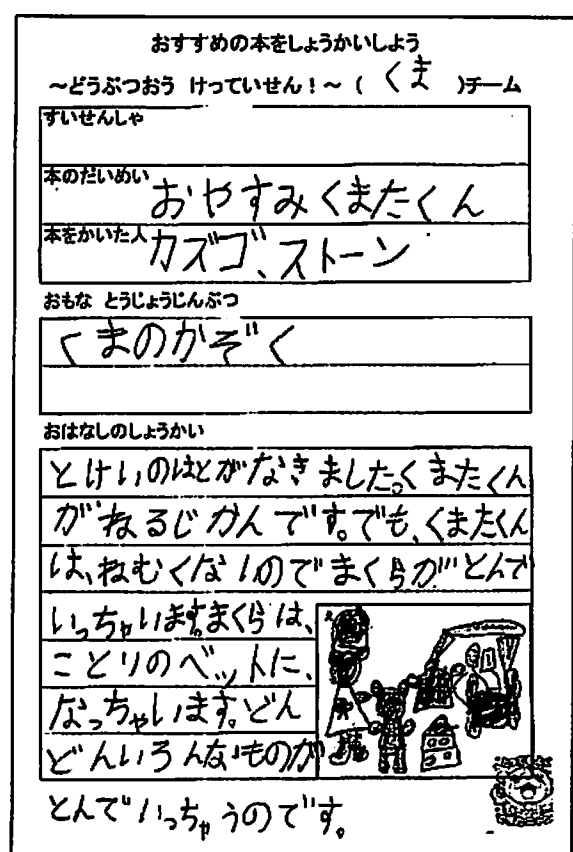 おすすめの本をしょうかいしよう
～どうぶつおう けっていせん！～ ( くま )チーム
すいせんしゃ
本のだいめい おやすみくまたくん
本をかいた人 カズゴ、ストーン
おもな とうじょうじんぶつ
くまのかぞく
おはなしのしょうかい
とけいのはとがなきました。くまたくん
がねるじかんです。でも、くまたくん
は、ねむくないのでまくらがとんで
いっちゃいます。まくらは、
ことりのベットに、
なっちゃいます。どん
どんいろんなものが
とんでいっちゃうのです。